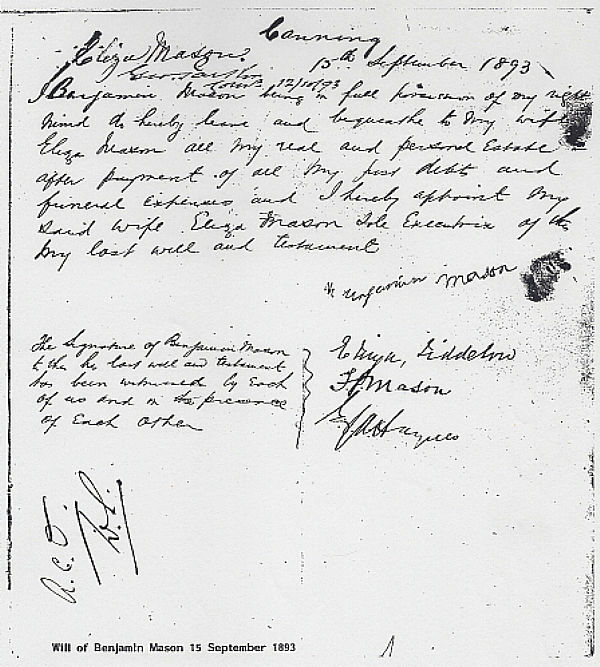 Canning
Eliza Mason. 15th September 1893
12/10/93
I Benjamin Mason being in full possession of my right
mind do hereby leave and bequeathe to my wife
Eliza Mason all my real and personal Estate
after payment of all my just debts and
funeral expenses and I hereby appoint my
said wife Eliza Mason Sole Executrix of this
my last will and testament
Benjamin Mason
The Signature of Benjamin Mason
to this his last will and testament
has been witnessed by Each
of us and in the presence
of Each other
Eliza, Liddelow
F. Mason
Haynes
A.C.O.
Will of Benjamin Mason 15 September 1893